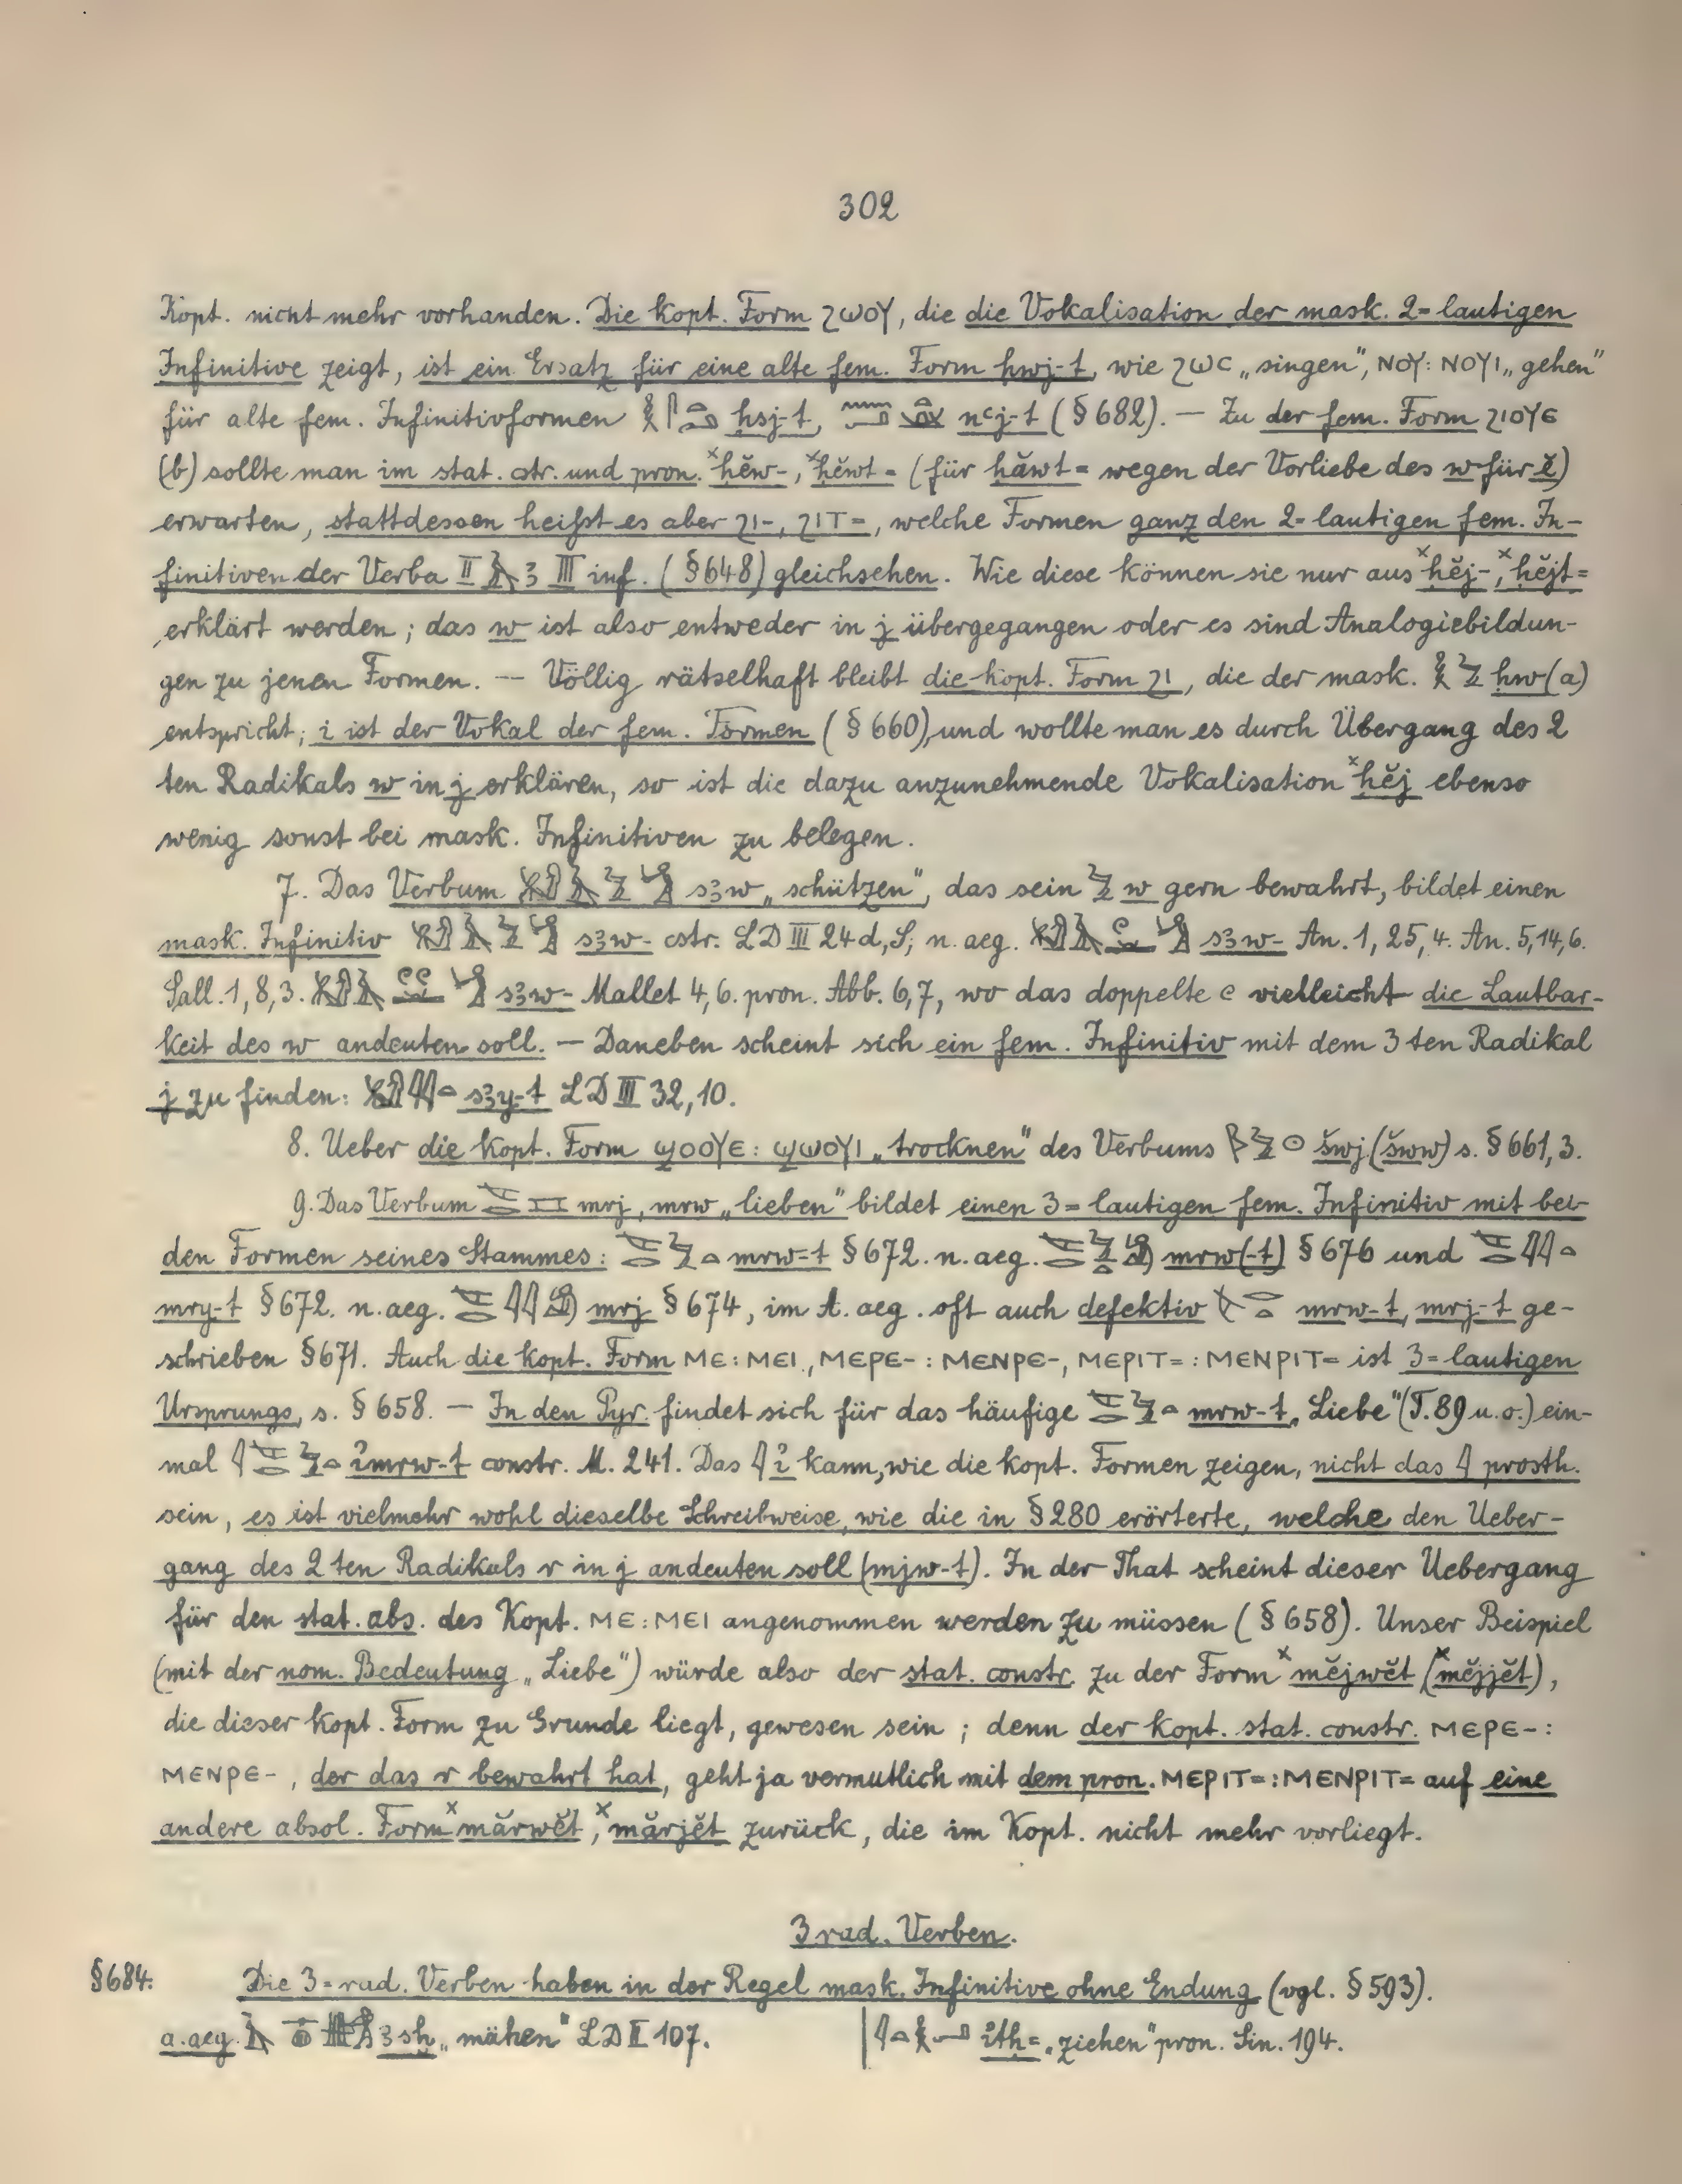 302
Kopt. nicht mehr vorhanden. Die kopt. Form ϩⲱⲟⲩ, die die Vokalisation der mask. 2=lautigen
Infinitive zeigt, ist ein Ersatz für eine alte fem. Form ḥwj-t, wie ϩⲱⲥ „singen", ⲛⲟⲩ: ⲛⲟⲩⲓ „gehen"
für alte fem. Infinitivformen ḥsj-t, nꜥj-t (§ 682). — Zu der fem. Form ϩⲓⲟⲩⲉ
(b) sollte man im stat. cstr. und pron. ˣḥĕw-, ˣḥĕwt= (für ḥăwt= wegen der Vorliebe des w für ĕ)
erwarten, stattdessen heißt es aber ϩⲓ-, ϩⲓⲧ=, welche Formen ganz den 2=lautigen fem. In-
finitiven der Verba II ꜣ III inf. (§ 648) gleichsehen. Wie diese können sie nur aus ˣḥĕj-, ˣḥĕjt=
erklärt werden; das w ist also entweder in j übergegangen oder es sind Analogiebildun-
gen zu jenen Formen. — Völlig rätselhaft bleibt die kopt. Form ϩⲓ, die der mask. ḥw (a)
entspricht; i ist der Vokal der fem. Formen (§ 660), und wollte man es durch Übergang des 2
ten Radikals w in j erklären, so ist die dazu anzunehmende Vokalisation ˣḥĕj ebenso
wenig sonst bei mask. Infinitiven zu belegen.
7. Das Verbum sꜣw „schützen", das sein w gern bewahrt, bildet einen
mask. Infinitiv sꜣw- cstr. LD III 24 d, S; n. aeg. sꜣw- An. 1, 25, 4. An. 5, 14, 6.
Sall. 1, 8, 3. sꜣw- Mallet 4, 6. pron. Abb. 6, 7, wo das doppelte vielleicht die Lautbar-
keit des w andeuten soll. — Daneben scheint sich ein fem. Infinitiv mit dem 3ten Radikal
j zu finden: sꜣy-t LD III 32, 10.
8. Ueber die kopt. Form ϣⲟⲟⲩⲉ: ϣⲱⲟⲩⲓ „trocknen" des Verbums šwj (šww) s. § 661, 3.
9. Das Verbum mrj, mrw „lieben" bildet einen 3=lautigen fem. Infinitiv mit bei-
den Formen seines Stammes: mrw-t § 672. n. aeg. mrw(-t) § 676 und
mry-t § 672. n. aeg. mrj § 674, im A. aeg. oft auch defektiv mrw-t, mrj-t ge-
schrieben § 671. Auch die kopt. Form ⲙⲉ: ⲙⲉⲓ, ⲙⲉⲣⲉ-: ⲙⲉⲛⲣⲉ-, ⲙⲉⲣⲓⲧ=: ⲙⲉⲛⲣⲓⲧ= ist 3=lautigen
Ursprungs, s. § 658. — In den Pyr. findet sich für das häufige mrw-t „Liebe" (T. 89 u. o.) ein-
mal ỉmrw-t constr. M. 241. Das ỉ kann, wie die kopt. Formen zeigen, nicht das prosth.
sein, es ist vielmehr wohl dieselbe Schreibweise, wie die in § 280 erörterte, welche den Ueber-
gang des 2ten Radikals r in j andeuten soll (mjw-t). In der That scheint dieser Uebergang
für den stat. abs. des Kopt. ⲙⲉ: ⲙⲉⲓ angenommen werden zu müssen (§ 658). Unser Beispiel
(mit der nom. Bedeutung „Liebe") würde also der stat. constr. zu der Form ˣmĕjwĕt (ˣmĕjjĕt),
die dieser kopt. Form zu Grunde liegt, gewesen sein; denn der kopt. stat. constr. ⲙⲉⲣⲉ-:
ⲙⲉⲛⲣⲉ-, der das r bewahrt hat, geht ja vermutlich mit dem pron. ⲙⲉⲣⲓⲧ=: ⲙⲉⲛⲣⲓⲧ= auf eine
andere absol. Form ˣmărwĕt, ˣmărjĕt zurück, die im Kopt. nicht mehr vorliegt.
3 rad. Verben.
§ 684. Die 3=rad. Verben haben in der Regel mask. Infinitive ohne Endung (vgl. § 593).
a. aeg. ꜣsḫ „mähen" LD II 107. | ỉtḥ= „ziehen" pron. Sin. 194.